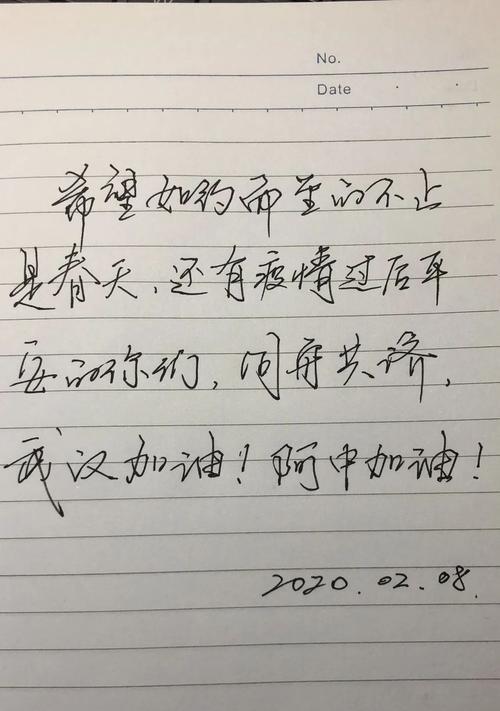 No.
Date
希望如约而至的不止
是春天，还有疫情过后平
安的你们，同舟共济，
武汉加油！阿中加油！
2020.02.08.